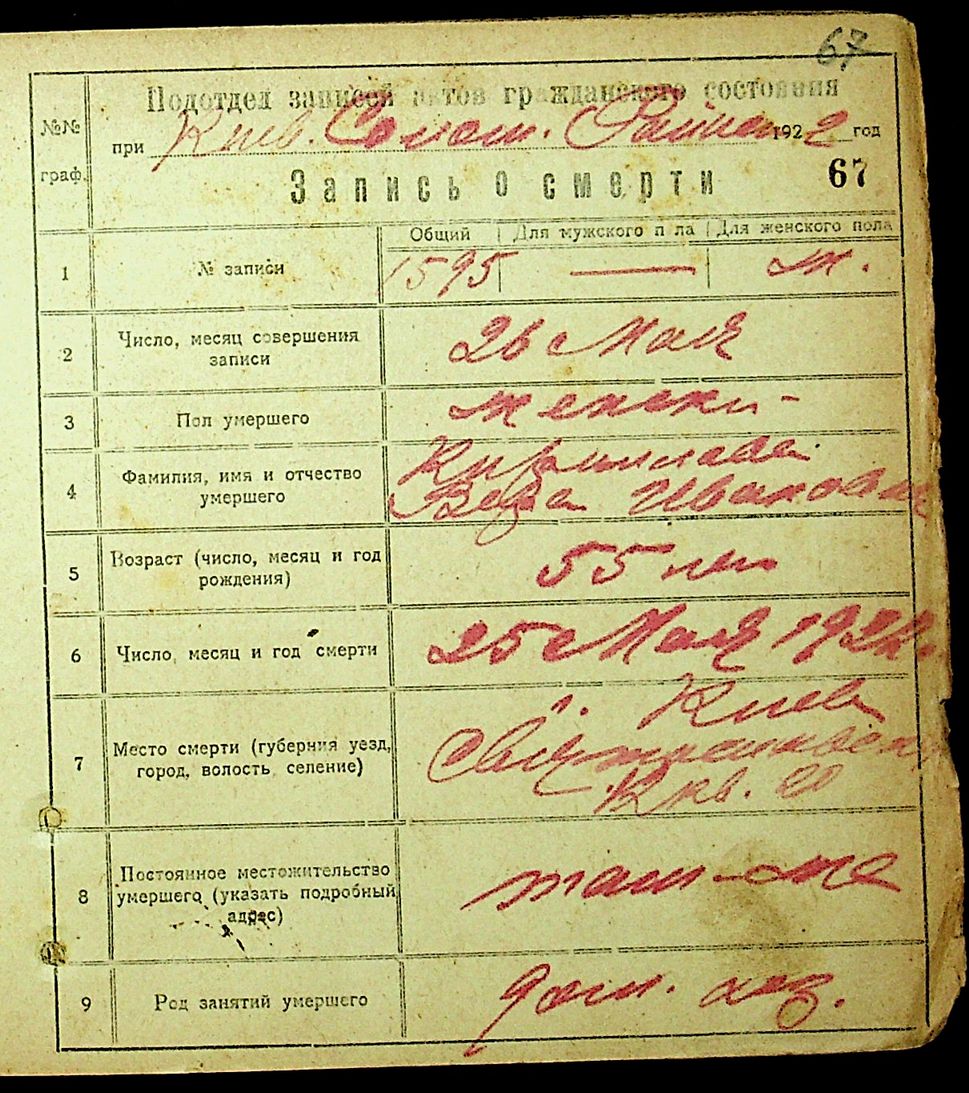 67
Подотдел записей актов гражданского состояния
№№ граф.
при Киев. Солом. Районе 1922 год
Запись о смерти 67
Общий Для мужского пола Для женского пола
1 № записи 1595 — ж.
2 Число, месяц совершения
записи
26 Мая
3 Пол умершего женски-
4 Фамилия, имя и отчество
умершего
Вера Ивановна
5 Возраст (число, месяц и год
рождения)
55 лет
6 Число, месяц и год смерти 25 Мая 1922г.
7 Место смерти (губерния уезд,
город, волость селение)
г. Киев
кв. 20
8 Постоянное местожительство
умершего (указать подробный
адрес)
там-же
9 Род занятий умершего дом. хоз.